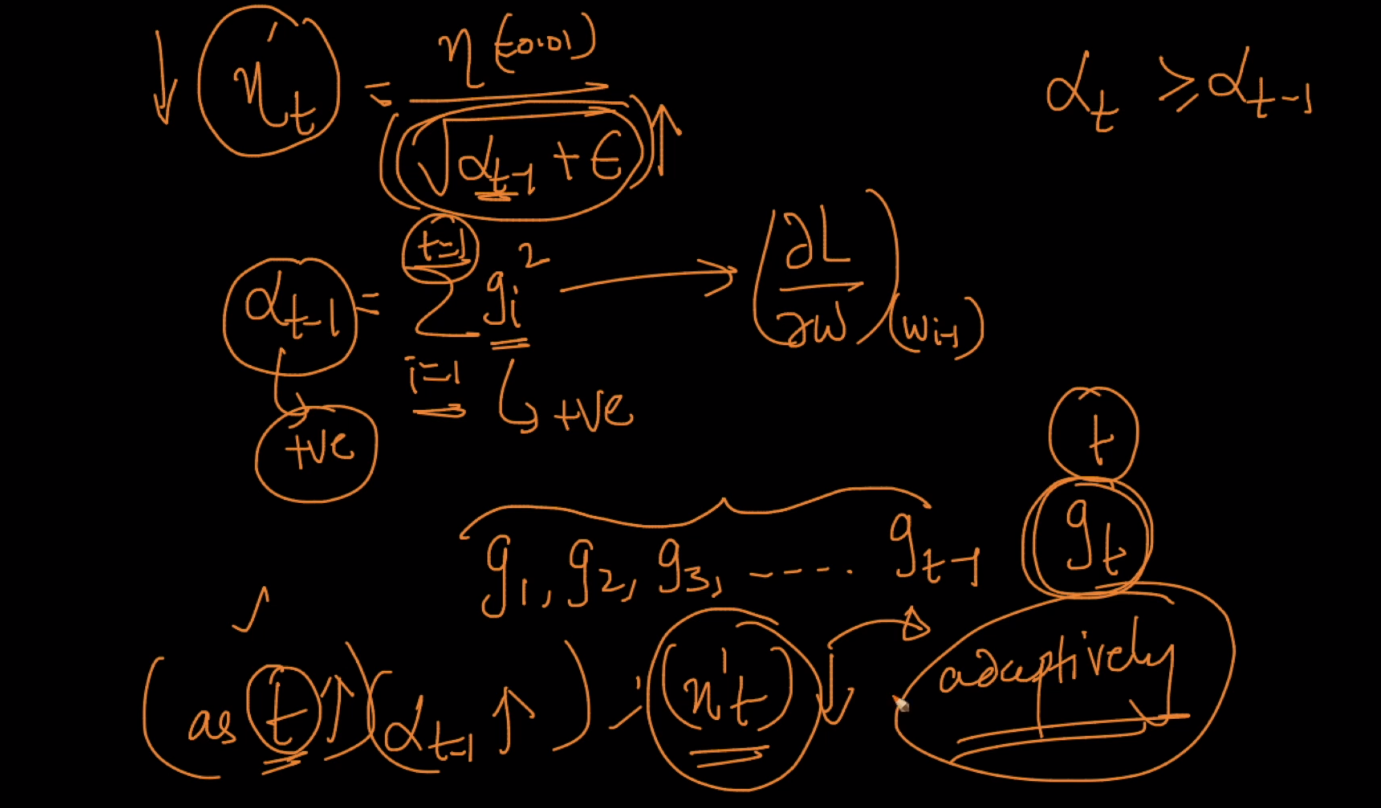 η't = η (=0.01) / √(αt-1 + ϵ)
αt ≥ αt-1
αt-1 = t=1 ∑ i=1 gi² → (∂L/∂w)(wi-1)
+ve
+ve
t
g1, g2, g3, ----. gt-1 gt
(as t↑)(αt-1 ↑) ; (η't)↓ adaptively